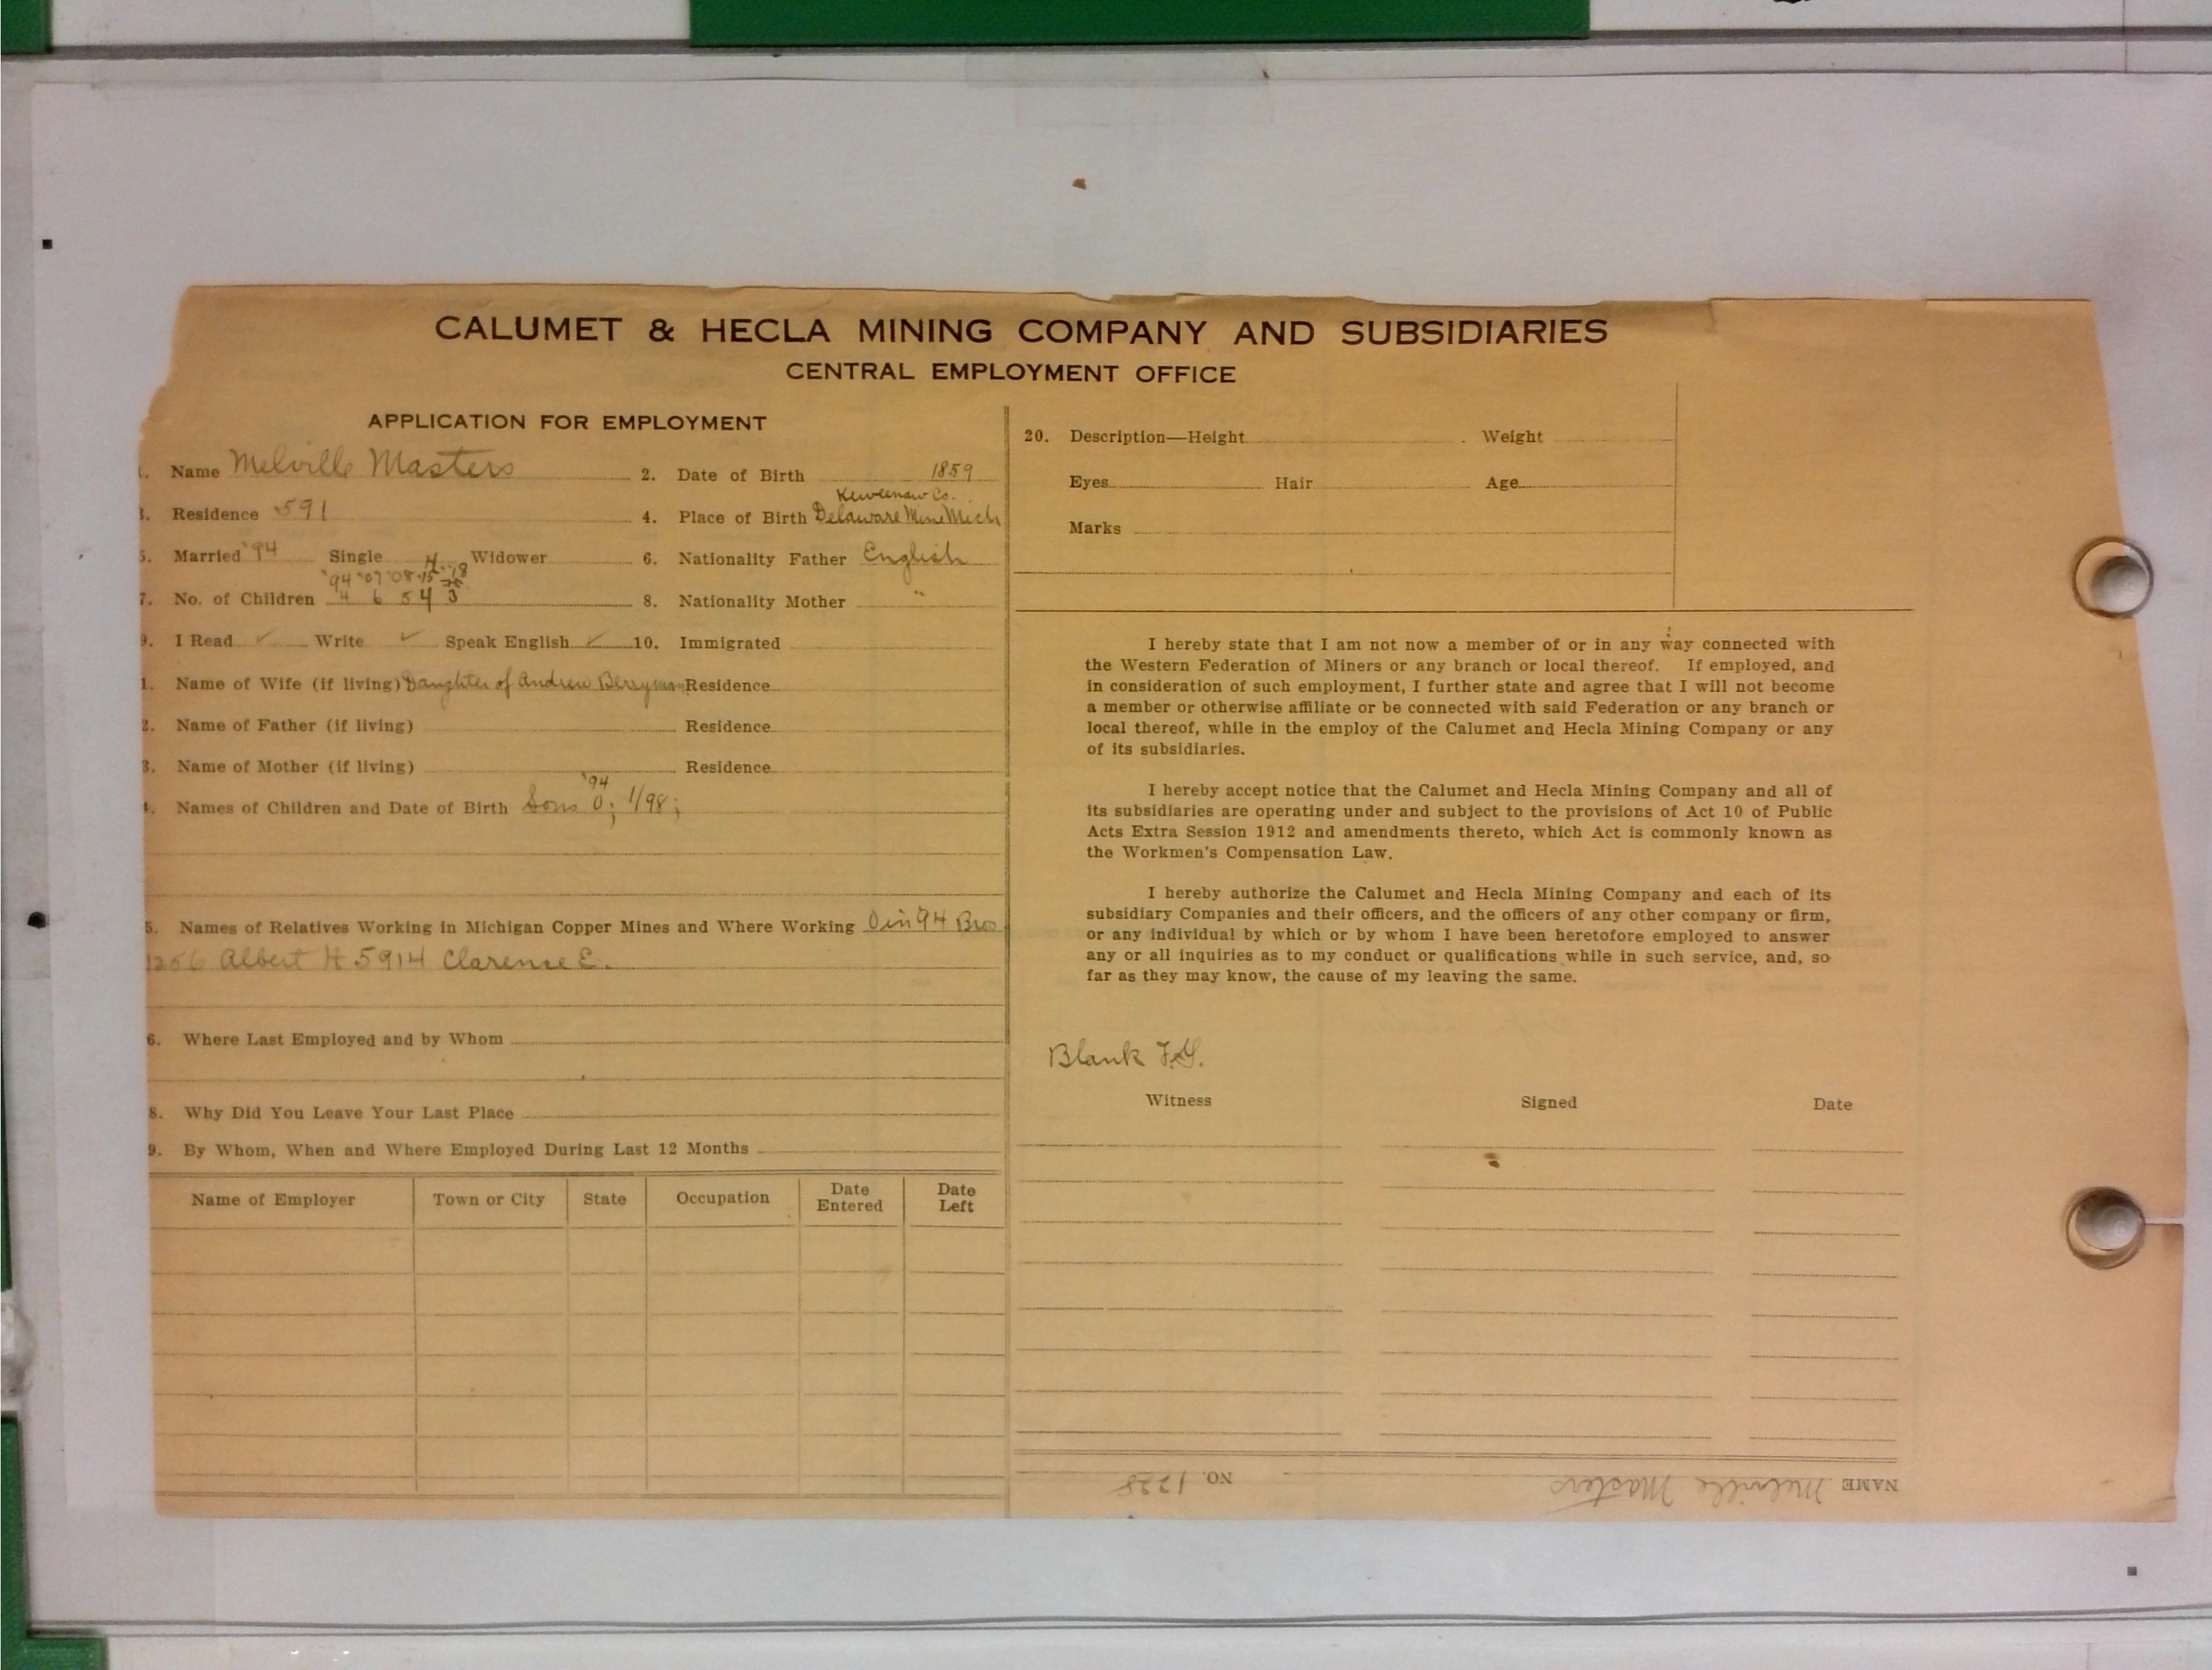 CALUMET & HECLA MINING COMPANY AND SUBSIDIARIES
CENTRAL EMPLOYMENT OFFICE
APPLICATION FOR EMPLOYMENT
1. Name Melville Masters 2. Date of Birth 1859
Keweenaw Co.
3. Residence 591 4. Place of Birth Delaware Mine Mich
5. Married '94 Single Widower 6. Nationality Father English
'94 '07 '08 '15 '18
7. No. of Children 4 6 5 4 3 8. Nationality Mother "
9. I Read ✓ Write ✓ Speak English ✓ 10. Immigrated
1. Name of Wife (if living) Daughter of Andrew Berryman Residence
2. Name of Father (if living) Residence
3. Name of Mother (if living) Residence
'94
4. Names of Children and Date of Birth Sons 0; 1/98;
5. Names of Relatives Working in Michigan Copper Mines and Where Working 0 in 94 Bros
1256 Albert H 5914 Clarence E.
6. Where Last Employed and by Whom
8. Why Did You Leave Your Last Place
9. By Whom, When and Where Employed During Last 12 Months
Name of Employer Town or City State Occupation Date Entered Date Left
20. Description—Height Weight
Eyes Hair Age
Marks
I hereby state that I am not now a member of or in any way connected with
the Western Federation of Miners or any branch or local thereof. If employed, and
in consideration of such employment, I further state and agree that I will not become
a member or otherwise affiliate or be connected with said Federation or any branch or
local thereof, while in the employ of the Calumet and Hecla Mining Company or any
of its subsidiaries.
I hereby accept notice that the Calumet and Hecla Mining Company and all of
its subsidiaries are operating under and subject to the provisions of Act 10 of Public
Acts Extra Session 1912 and amendments thereto, which Act is commonly known as
the Workmen's Compensation Law.
I hereby authorize the Calumet and Hecla Mining Company and each of its
subsidiary Companies and their officers, and the officers of any other company or firm,
or any individual by which or by whom I have been heretofore employed to answer
any or all inquiries as to my conduct or qualifications while in such service, and, so
far as they may know, the cause of my leaving the same.
Blank
Witness Signed Date
NAME Melville Masters NO. 1228